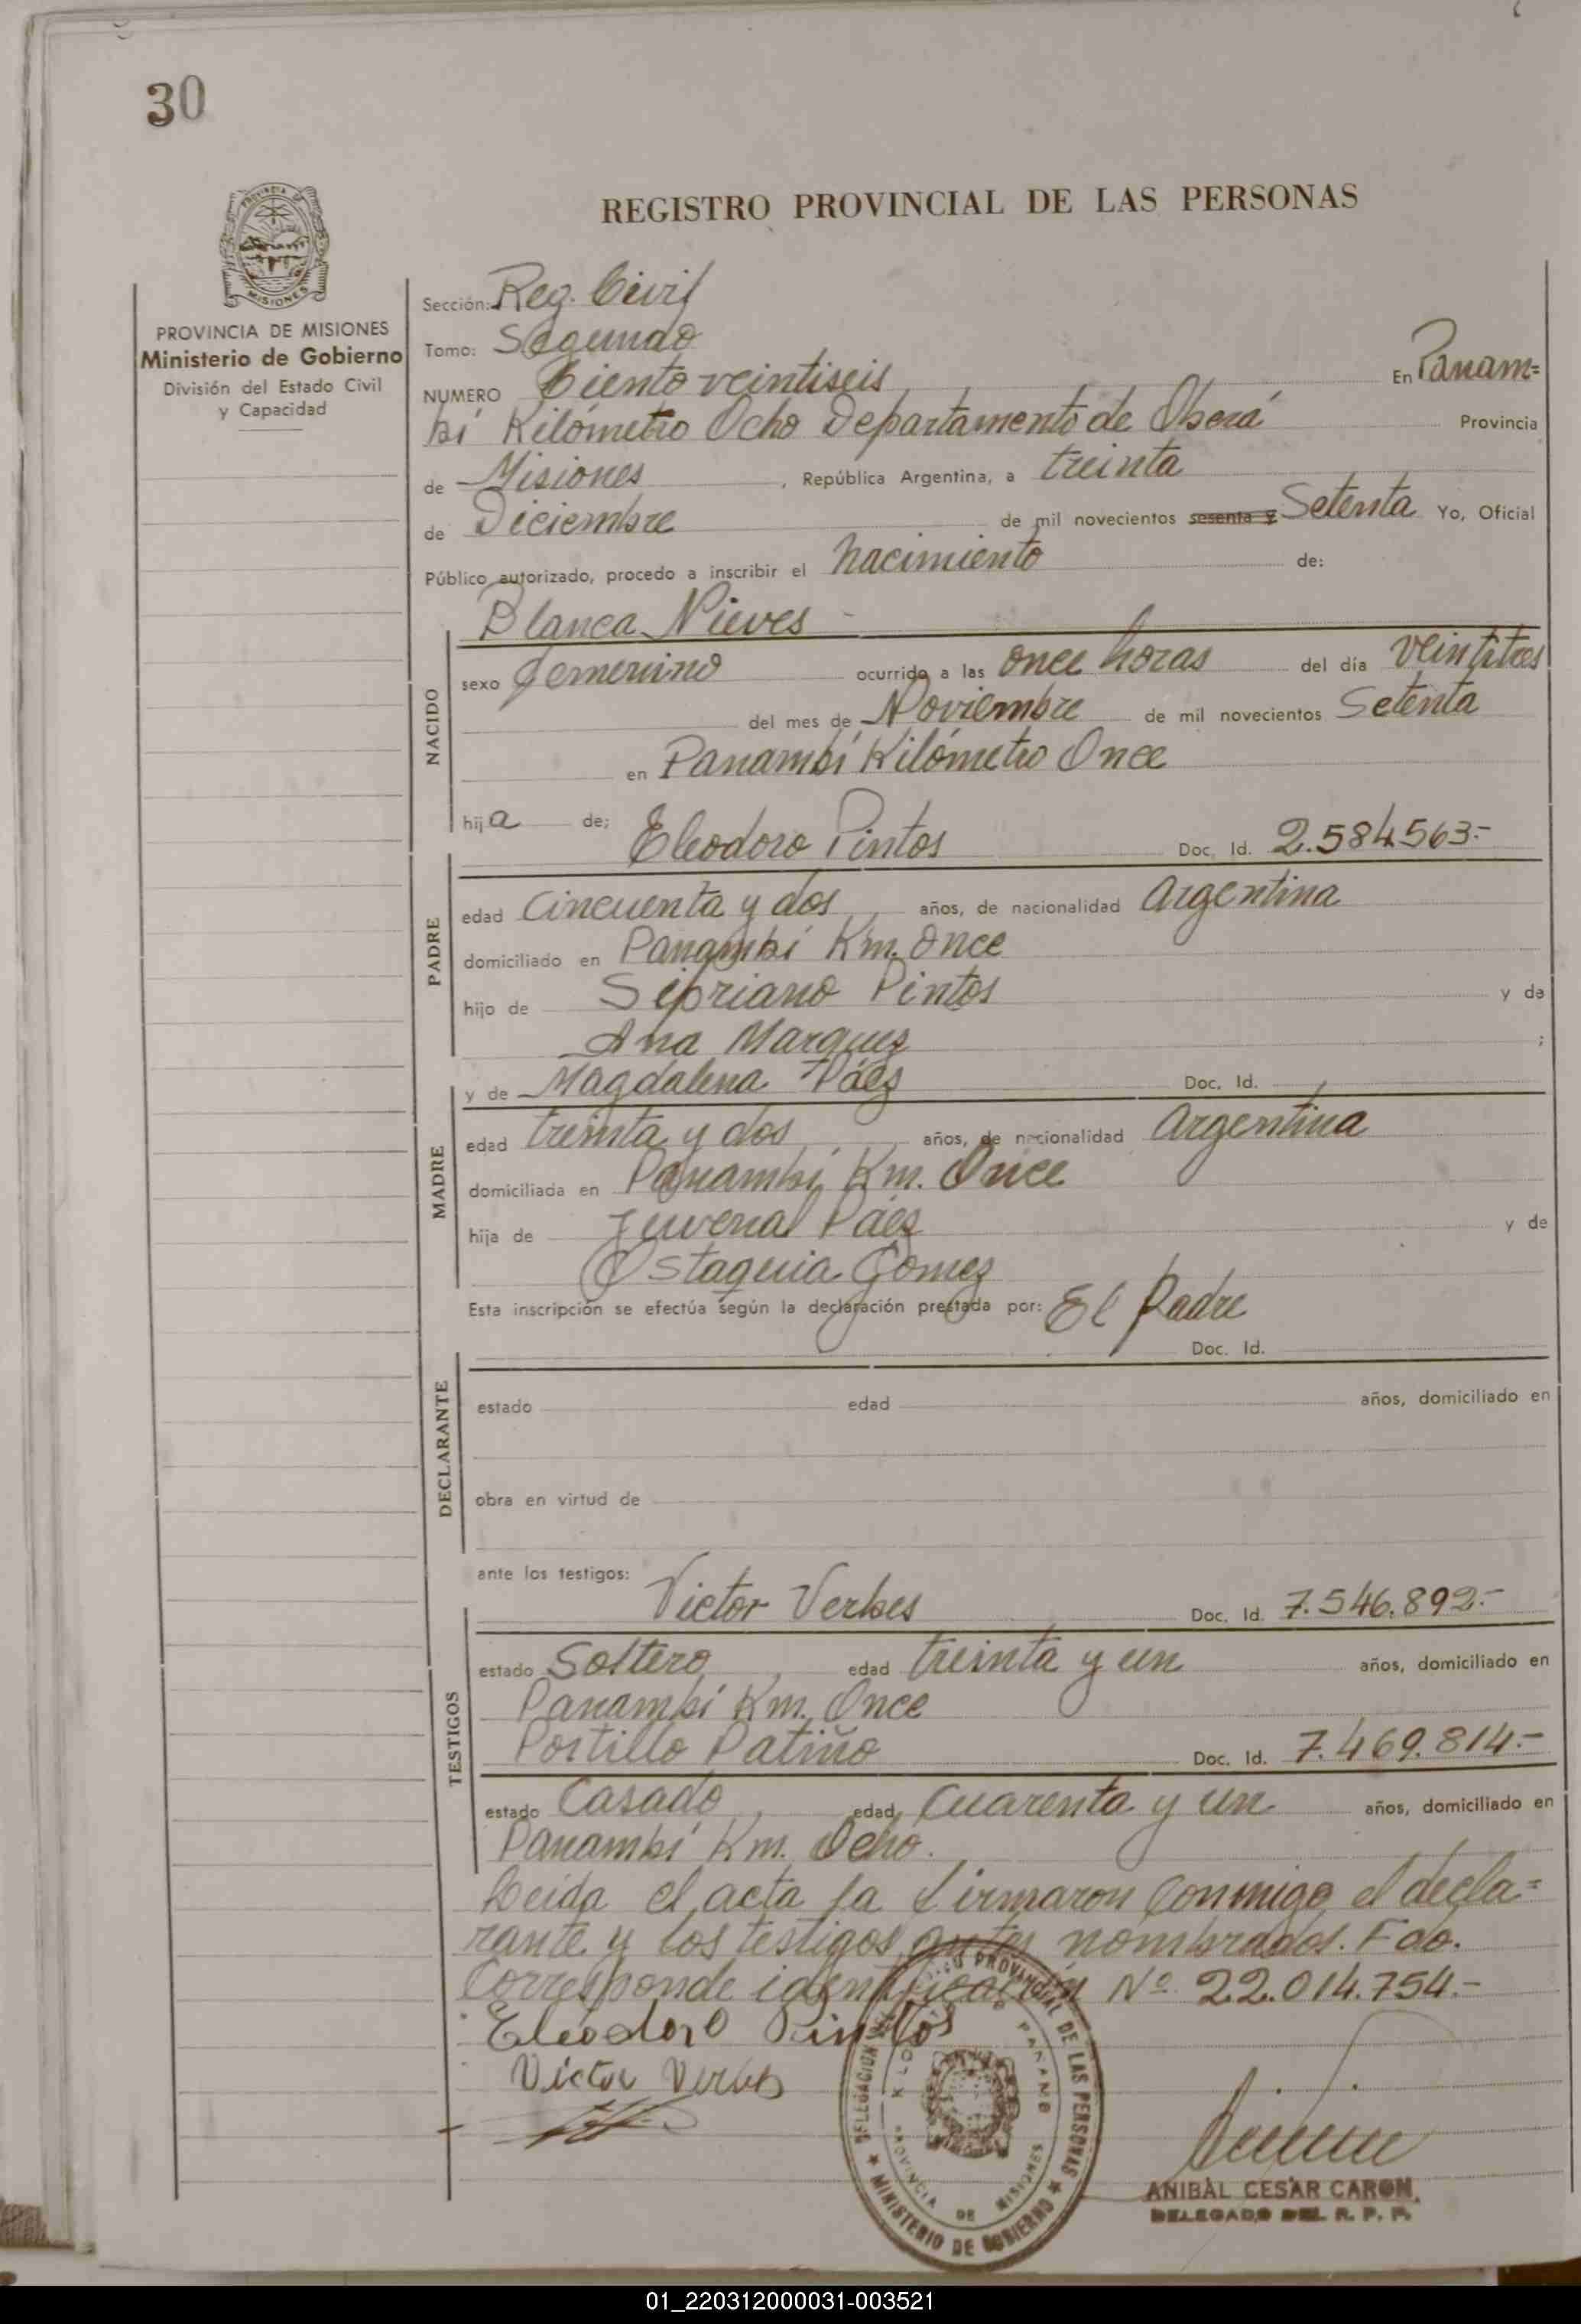 30
REGISTRO PROVINCIAL DE LAS PERSONAS
PROVINCIA DE MISIONES
Ministerio de Gobierno
División del Estado Civil
y Capacidad
Sección: Reg. Civil
Tomo: Segundo
NUMERO Ciento veintiseis En Panam=
bí Kilómetro Ocho Departamento de Oberá Provincia
de Misiones, República Argentina, a treinta
de Diciembre de mil novecientos sesenta y Setenta Yo, Oficial
Público autorizado, procedo a inscribir el nacimiento de:
Blanca Nieves
NACIDO
sexo femenino ocurrido a las once horas del día veintitres
del mes de Noviembre de mil novecientos Setenta
en Panambí Kilómetro Once
hija de; Eleodoro Pintos Doc. Id. 2.584.563.-
PADRE
edad Cincuenta y dos años, de nacionalidad Argentina
domiciliado en Panambí Km. Once
hijo de Sipriano Pintos y de
Ana Marquez ;
y de Magdalena Páez Doc. Id.
MADRE
edad treinta y dos años, de nacionalidad Argentina
domiciliada en Panambí Km. Once
hija de Juvenal Páez y de
Ostaquia Gomez
Esta inscripción se efectúa según la declaración prestada por: El Padre
Doc. Id.
DECLARANTE
estado edad años, domiciliado en
obra en virtud de
ante los testigos: Victor Verbes Doc. Id. 7.546.892.-
TESTIGOS
estado Soltero edad treinta y un años, domiciliado en
Panambí Km. Once
Portillo Patiño Doc. Id. 7.469.814.-
estado Casado edad Cuarenta y un años, domiciliado en
Panambí Km. Ocho.
Leida el acta la firmaron conmigo el decla=
rante y los testigos antes nombrados. Fdo.
Corresponde identificación Nº 22.014.754.-
Eleodoro Pintos
Victor Verbes
DELEGACION PROVINCIAL DE LAS PERSONAS
PROVINCIA DE MISIONES
MINISTERIO DE GOBIERNO
ANIBAL CESAR CARON
DELEGADO DEL R. P. P.
01_220312000031-003521